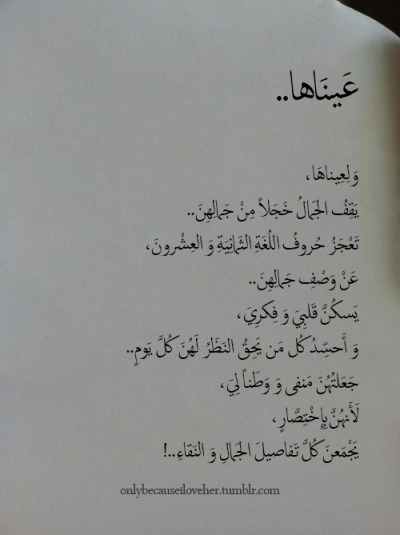 عَينَاها..
وَلِعِيناهَا،
يَقِفُ الجَمالُ خَجَلاً مِنْ جَمالِهِنَ..
تَعْجَزُ حُروفُ اللُغَةِ الثَمانِيَةِ وَ العِشْرونَ،
عَنْ وَصْفِ جَمالِهِنَ..
يَسكُنَّ قَلبِيَ وَ فِكرِيَ،
وَ أَحسِّدُ كُل مَن يَحِقُ النَظَرُ لَهُنَ كُلَّ يَومٍ..
جَعَلتُهُنَ مَنفى وَ وَطَناً لِيَ،
لَأَنهُنَّ بِإِختِصَّارٍ،
يَجْمَعنَ كُلَّ تَفاصيلَ الجَمالِ وَ النَقاءِ..!
onlybecauseiloveher.tumblr.com